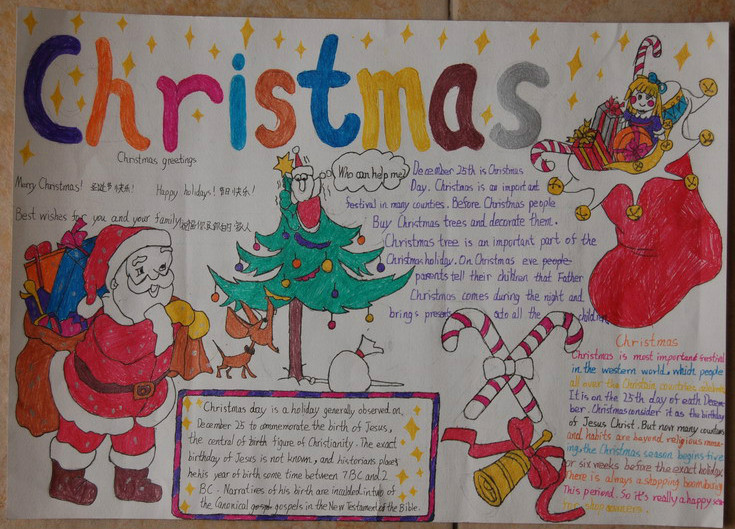 Christmas
Christmas greetings
Merry Christmas! 圣诞节快乐!
Happy holidays! 节日快乐!
Best wishes for you and your family!
Who can help me?
December 25th is Christmas
Day. Christmas is an important
festival in many counties. Before Christmas people
Buy Christmas trees and decorate them.
Christmas tree is an important part of the
Christmas holiday. On Christmas eve people
parents tell their children that Father
Christmas comes during the night and
brings presents to all the children
Christmas day is a holiday generally observed on
December 25 to commemorate the birth of Jesus,
the central of birth figure of Christianity. The exact
birthday of Jesus is not known, and historians places
he his year of birth some time between 7 BC and 2
BC. Narratives of his birth are included in two of
the Canonical gospels in the New Testament of the Bible.
Christmas
Christmas is most important festival
in the western world. which people
all over the Christian countries celebrate
It is on the 25th day of each Decem-
ber. Christmas consider it as the birthday
of Jesus Christ. But now many countries
and habits are beyond religious mean-
ing. the Christmas season begins five
or six weeks before the exact holiday
There is always a shopping boom during
This period. So it's really a happy sea-